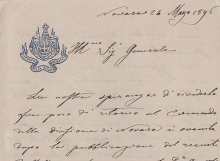 Novara 24 Mayo 1896
Ill.mo Sig Generale
La nostra speranza di vederla
fra poco di ritorno al Comando
della divisione di Novara è svanita
dopo la pubblicazione del recente